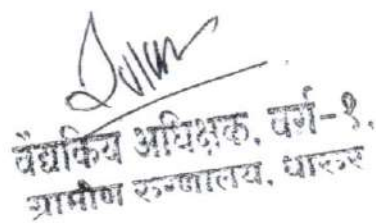 वैद्यकिय अधिक्षक, वर्ग-१,
ग्रामीण रुग्णालय, धारुर